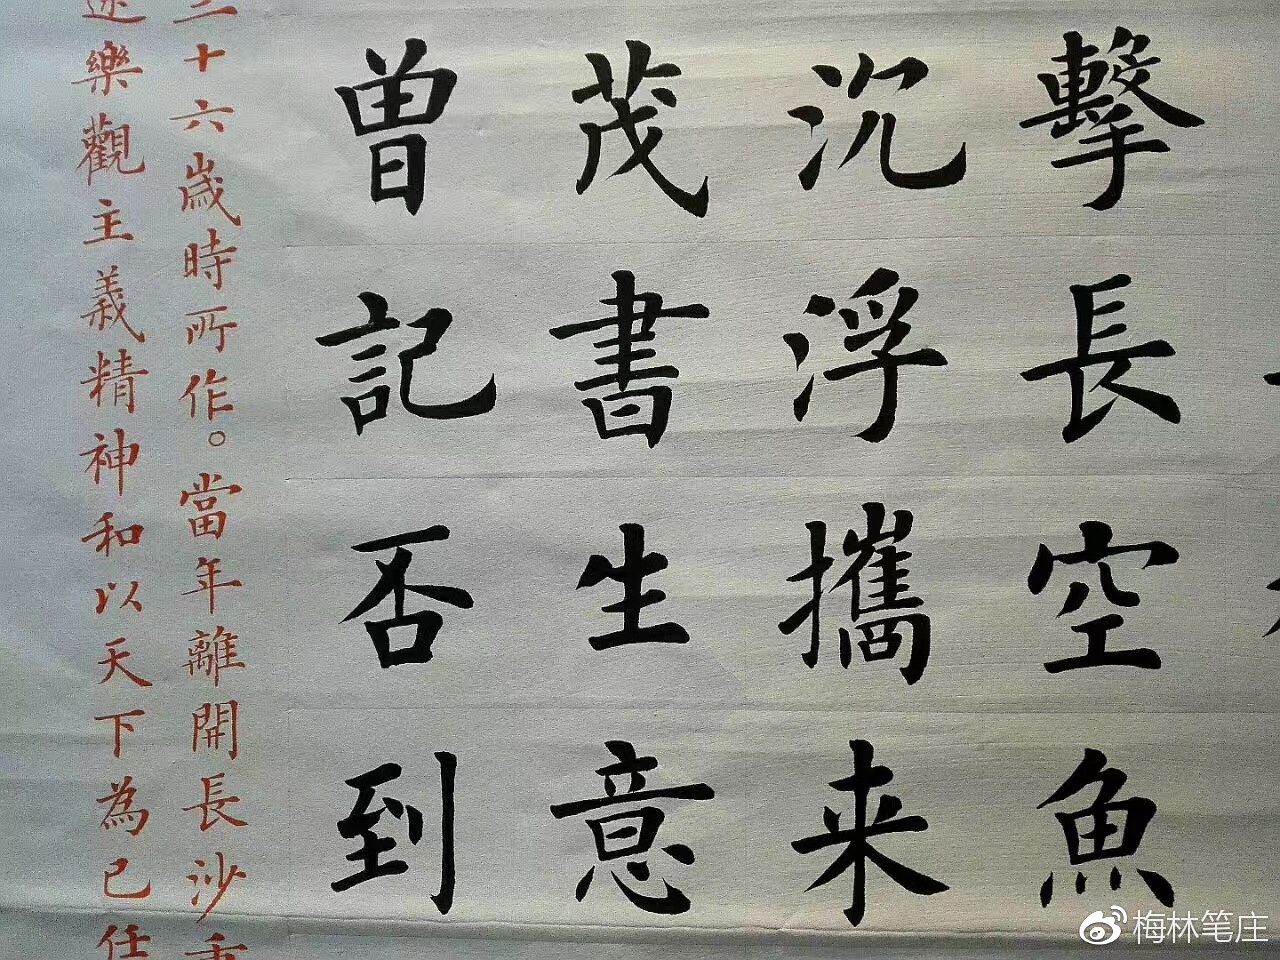 擊長空魚
沉浮攜来
茂書生意
曾記否到
三十六歲時所作。當年離開長沙重
途樂觀主義精神和以天下為己任
梅林笔庄